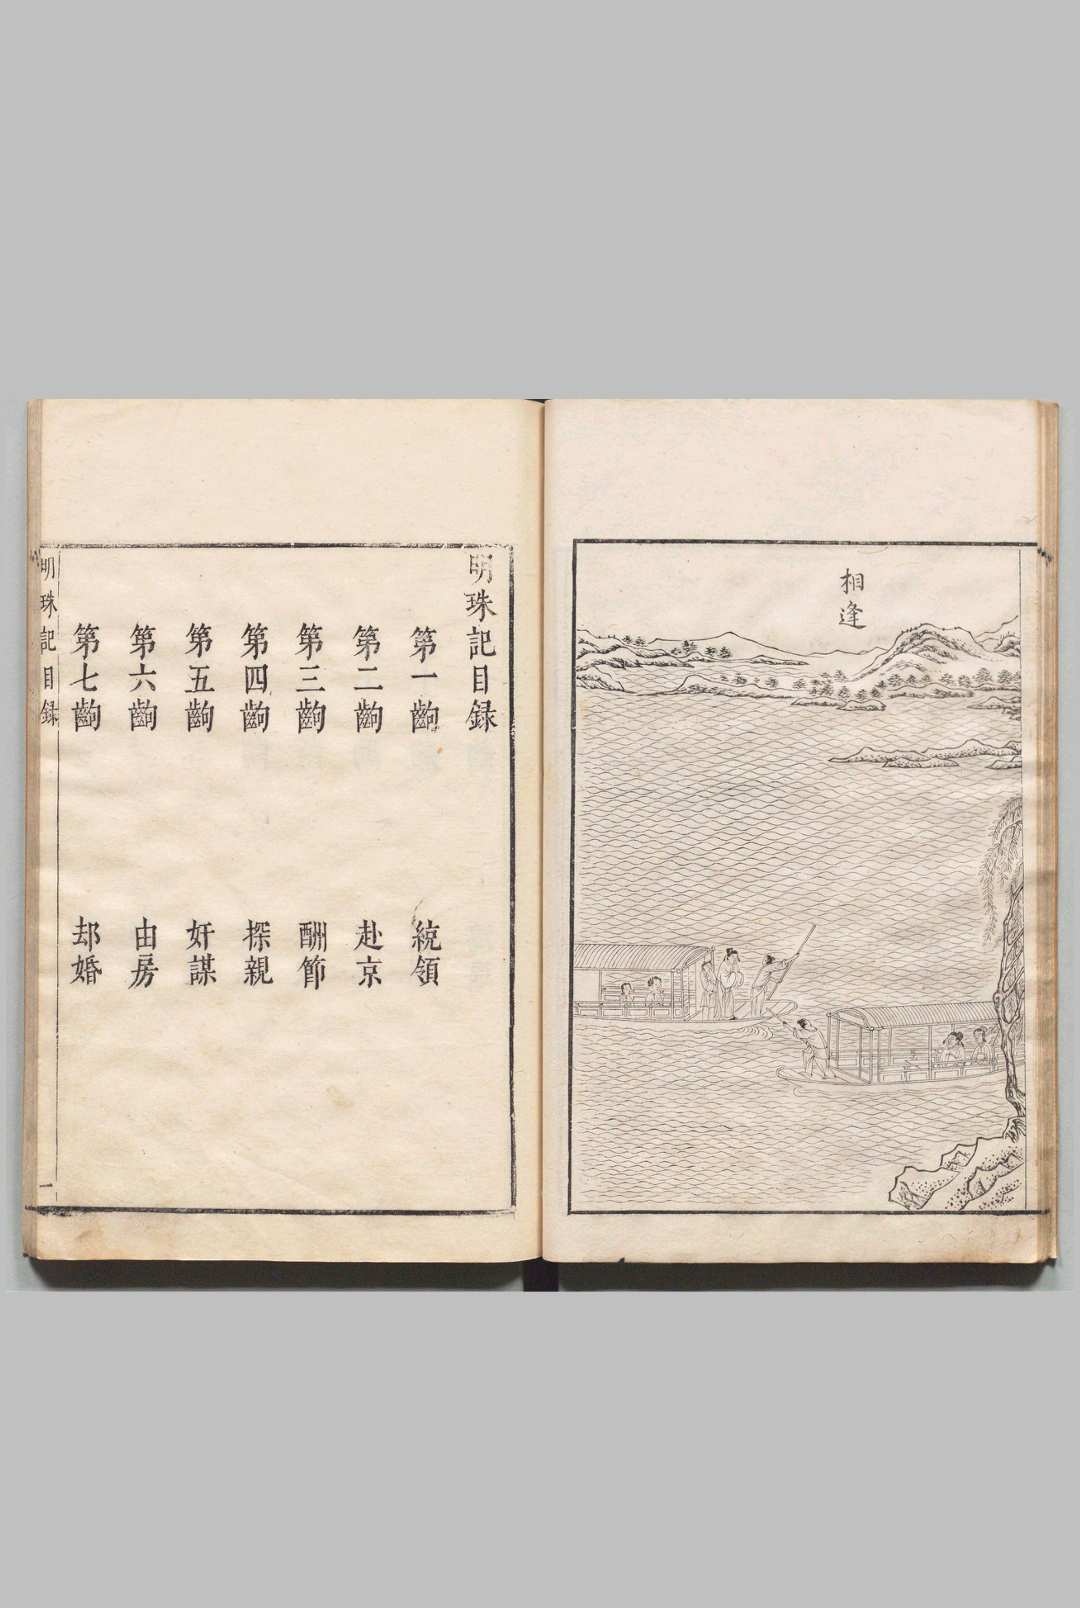 相逢
明珠記目録
第一齣 統領
第二齣 赴京
第三齣 酬節
第四齣 探親
第五齣 奸謀
第六齣 由房
第七齣 却婚
明珠記目録 一